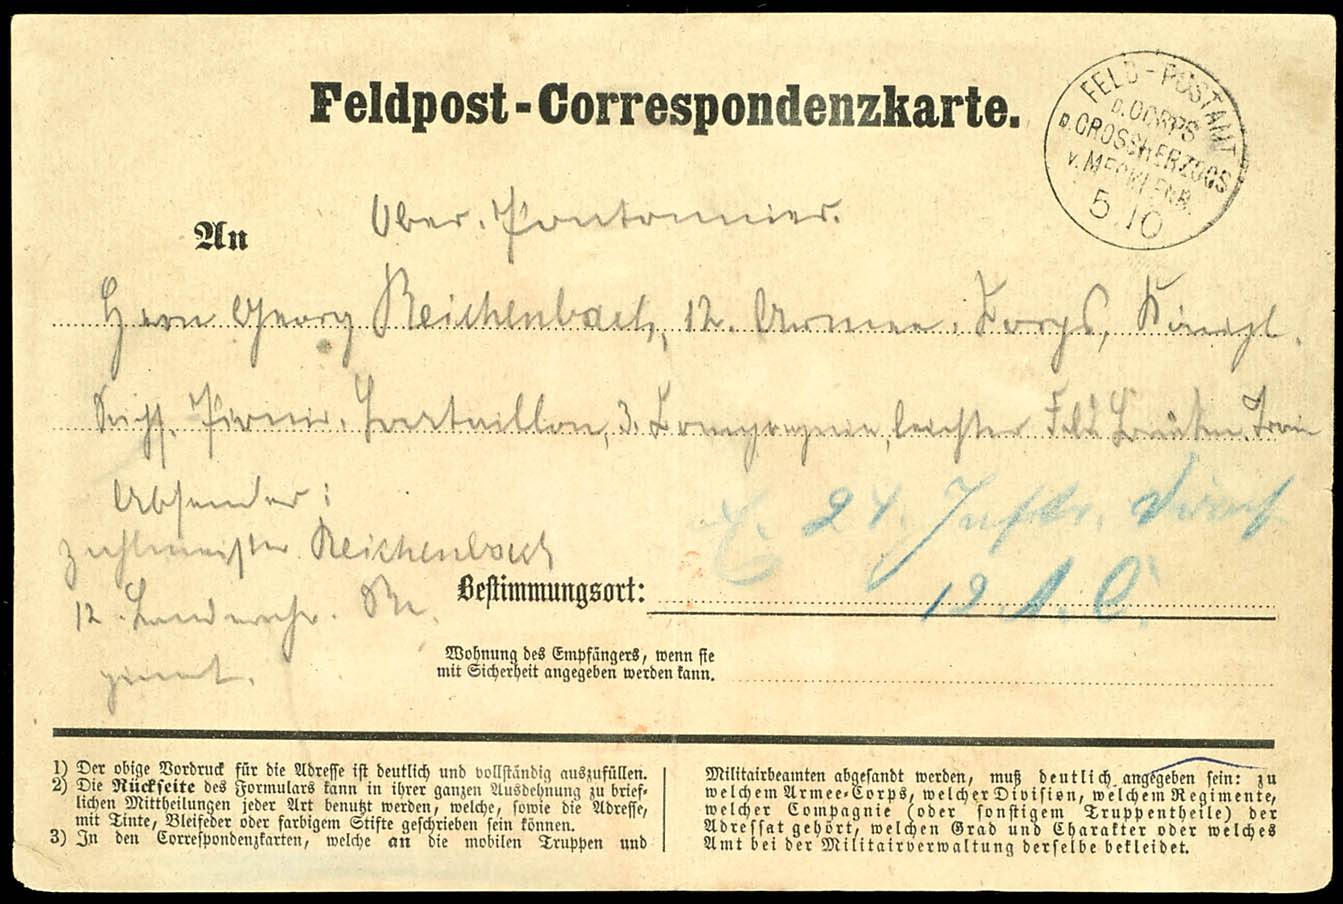 Feldpost-Correspondenzkarte.
FELD-POSTAMT
D. CORPS
D. GROSSHERZOGS
v. MECKLENB.
5 10
An
Ober-Pontonnier.
Herrn Georg Reichenbach, 12. Armee-Corps, Königl.
Sächs. Pionir-Bartaillon, 3. Compagnie, leichter Feld Brücken Train
Absender:
Zahlmeister Reichenbach
12. Landwehr-Re
giment.
24. 
12. A. C.
Bestimmungsort:
Wohnung des Empfängers, wenn sie
mit Sicherheit angegeben werden kann.
1) Der obige Vordruck für die Adresse ist deutlich und vollständig auszufüllen.
2) Die Rückseite des Formulars kann in ihrer ganzen Ausdehnung zu brief-
lichen Mittheilungen jeder Art benutzt werden, welche, sowie die Adresse,
mit Tinte, Bleifeder oder farbigem Stifte geschrieben sein können.
3) In den Correspondenzkarten, welche an die mobilen Truppen und
Militairbeamten abgesandt werden, muß deutlich angegeben sein: zu
welchem Armee-Corps, welcher Division, welchem Regimente,
welcher Compagnie (oder sonstigem Truppentheile) der
Adressat gehört, welchen Grad und Charakter oder welches
Amt bei der Militairverwaltung derselbe bekleidet.